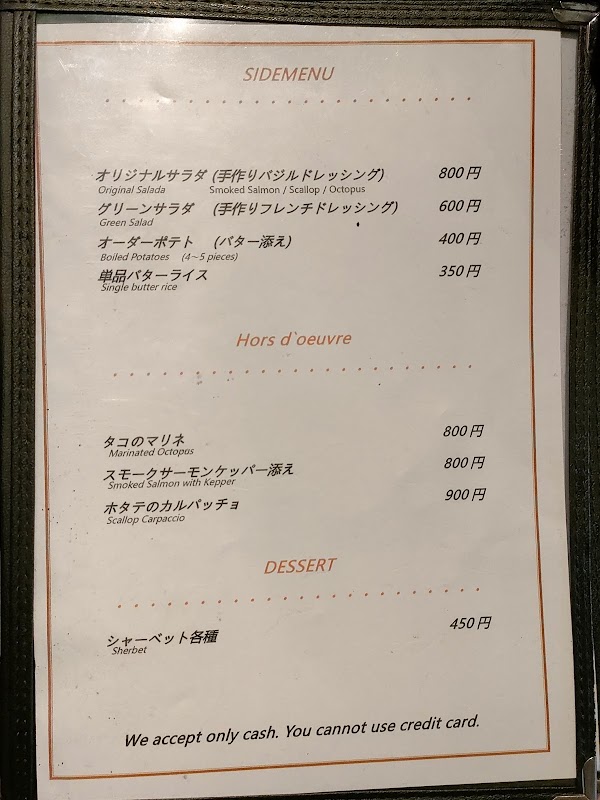 SIDEMENU
オリジナルサラダ (手作りバジルドレッシング) 800円
Original Salada Smoked Salmon / Scallop / Octopus
グリーンサラダ (手作りフレンチドレッシング) 600円
Green Salad
オーダーポテト (バター添え) 400円
Boiled Potatoes (4~5 pieces)
単品バターライス 350円
Single butter rice
Hors d`oeuvre
タコのマリネ 800円
Marinated Octopus
スモークサーモンケッパー添え 800円
Smoked Salmon with Kepper
ホタテのカルパッチョ 900円
Scallop Carpaccio
DESSERT
シャーベット各種 450円
Sherbet
We accept only cash. You cannot use credit card.